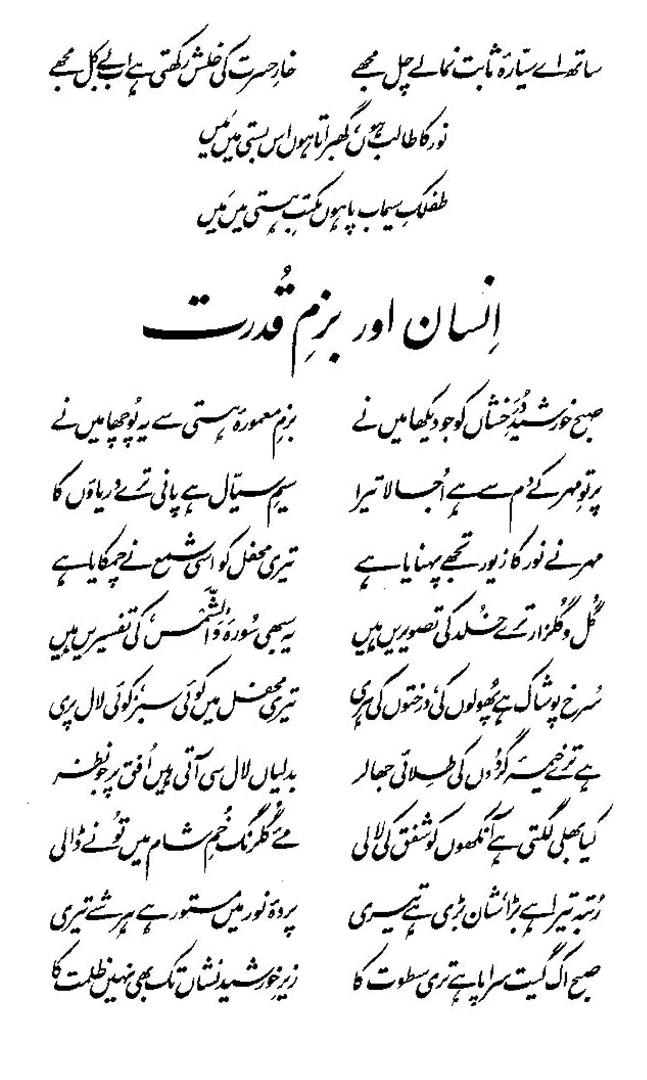 ساتھ اے سیّارۂ ثابت نما لے چل مجھے خارِ حسرت کی خلش رکھتی ہے اب بے کل مجھے
نور کا طالب ہوں، گھبراتا ہوں اس بستی میں مَیں
طفلکِ سیماب پا ہوں مکتبِ ہستی میں مَیں
اِنسان اور بزمِ قُدرت
صبح خورشیدِ دُرَخشاں کو جو دیکھا میں نے بزمِ معمورۂ ہستی سے یہ پُوچھا میں نے
پرتوِ مہر کے دم سے ہے اُجالا تیرا سیمِ سیّال ہے پانی ترے دریاؤں کا
مہر نے نور کا زیور تجھے پہنایا ہے تیری محفل کو اسی شمع نے چمکایا ہے
گُل و گُلزار ترے خُلد کی تصویریں ہیں یہ سبھی سُورۂ وَالشَّمس کی تفسیریں ہیں
سُرخ پوشاک ہے پھُولوں کی، درختوں کی ہری تیری محفل میں کوئی سبز، کوئی لال پری
ہے ترے خیمۂ گردُوں کی طِلائی جھالر بدلیاں لال سی آتی ہیں اُفق پر جو نظر
کیا بھلی لگتی ہے آنکھوں کو شفَق کی لالی مئے گلرنگ خُمِ شام میں تُو نے ڈالی
رُتبہ تیرا ہے بڑا، شان بڑی ہے تیری پردۂ نور میں مستور ہے ہر شے تیری
صبح اک گیت سراپا ہے تری سطوت کا زیرِ خورشید نشاں تک بھی نہیں ظلمت کا